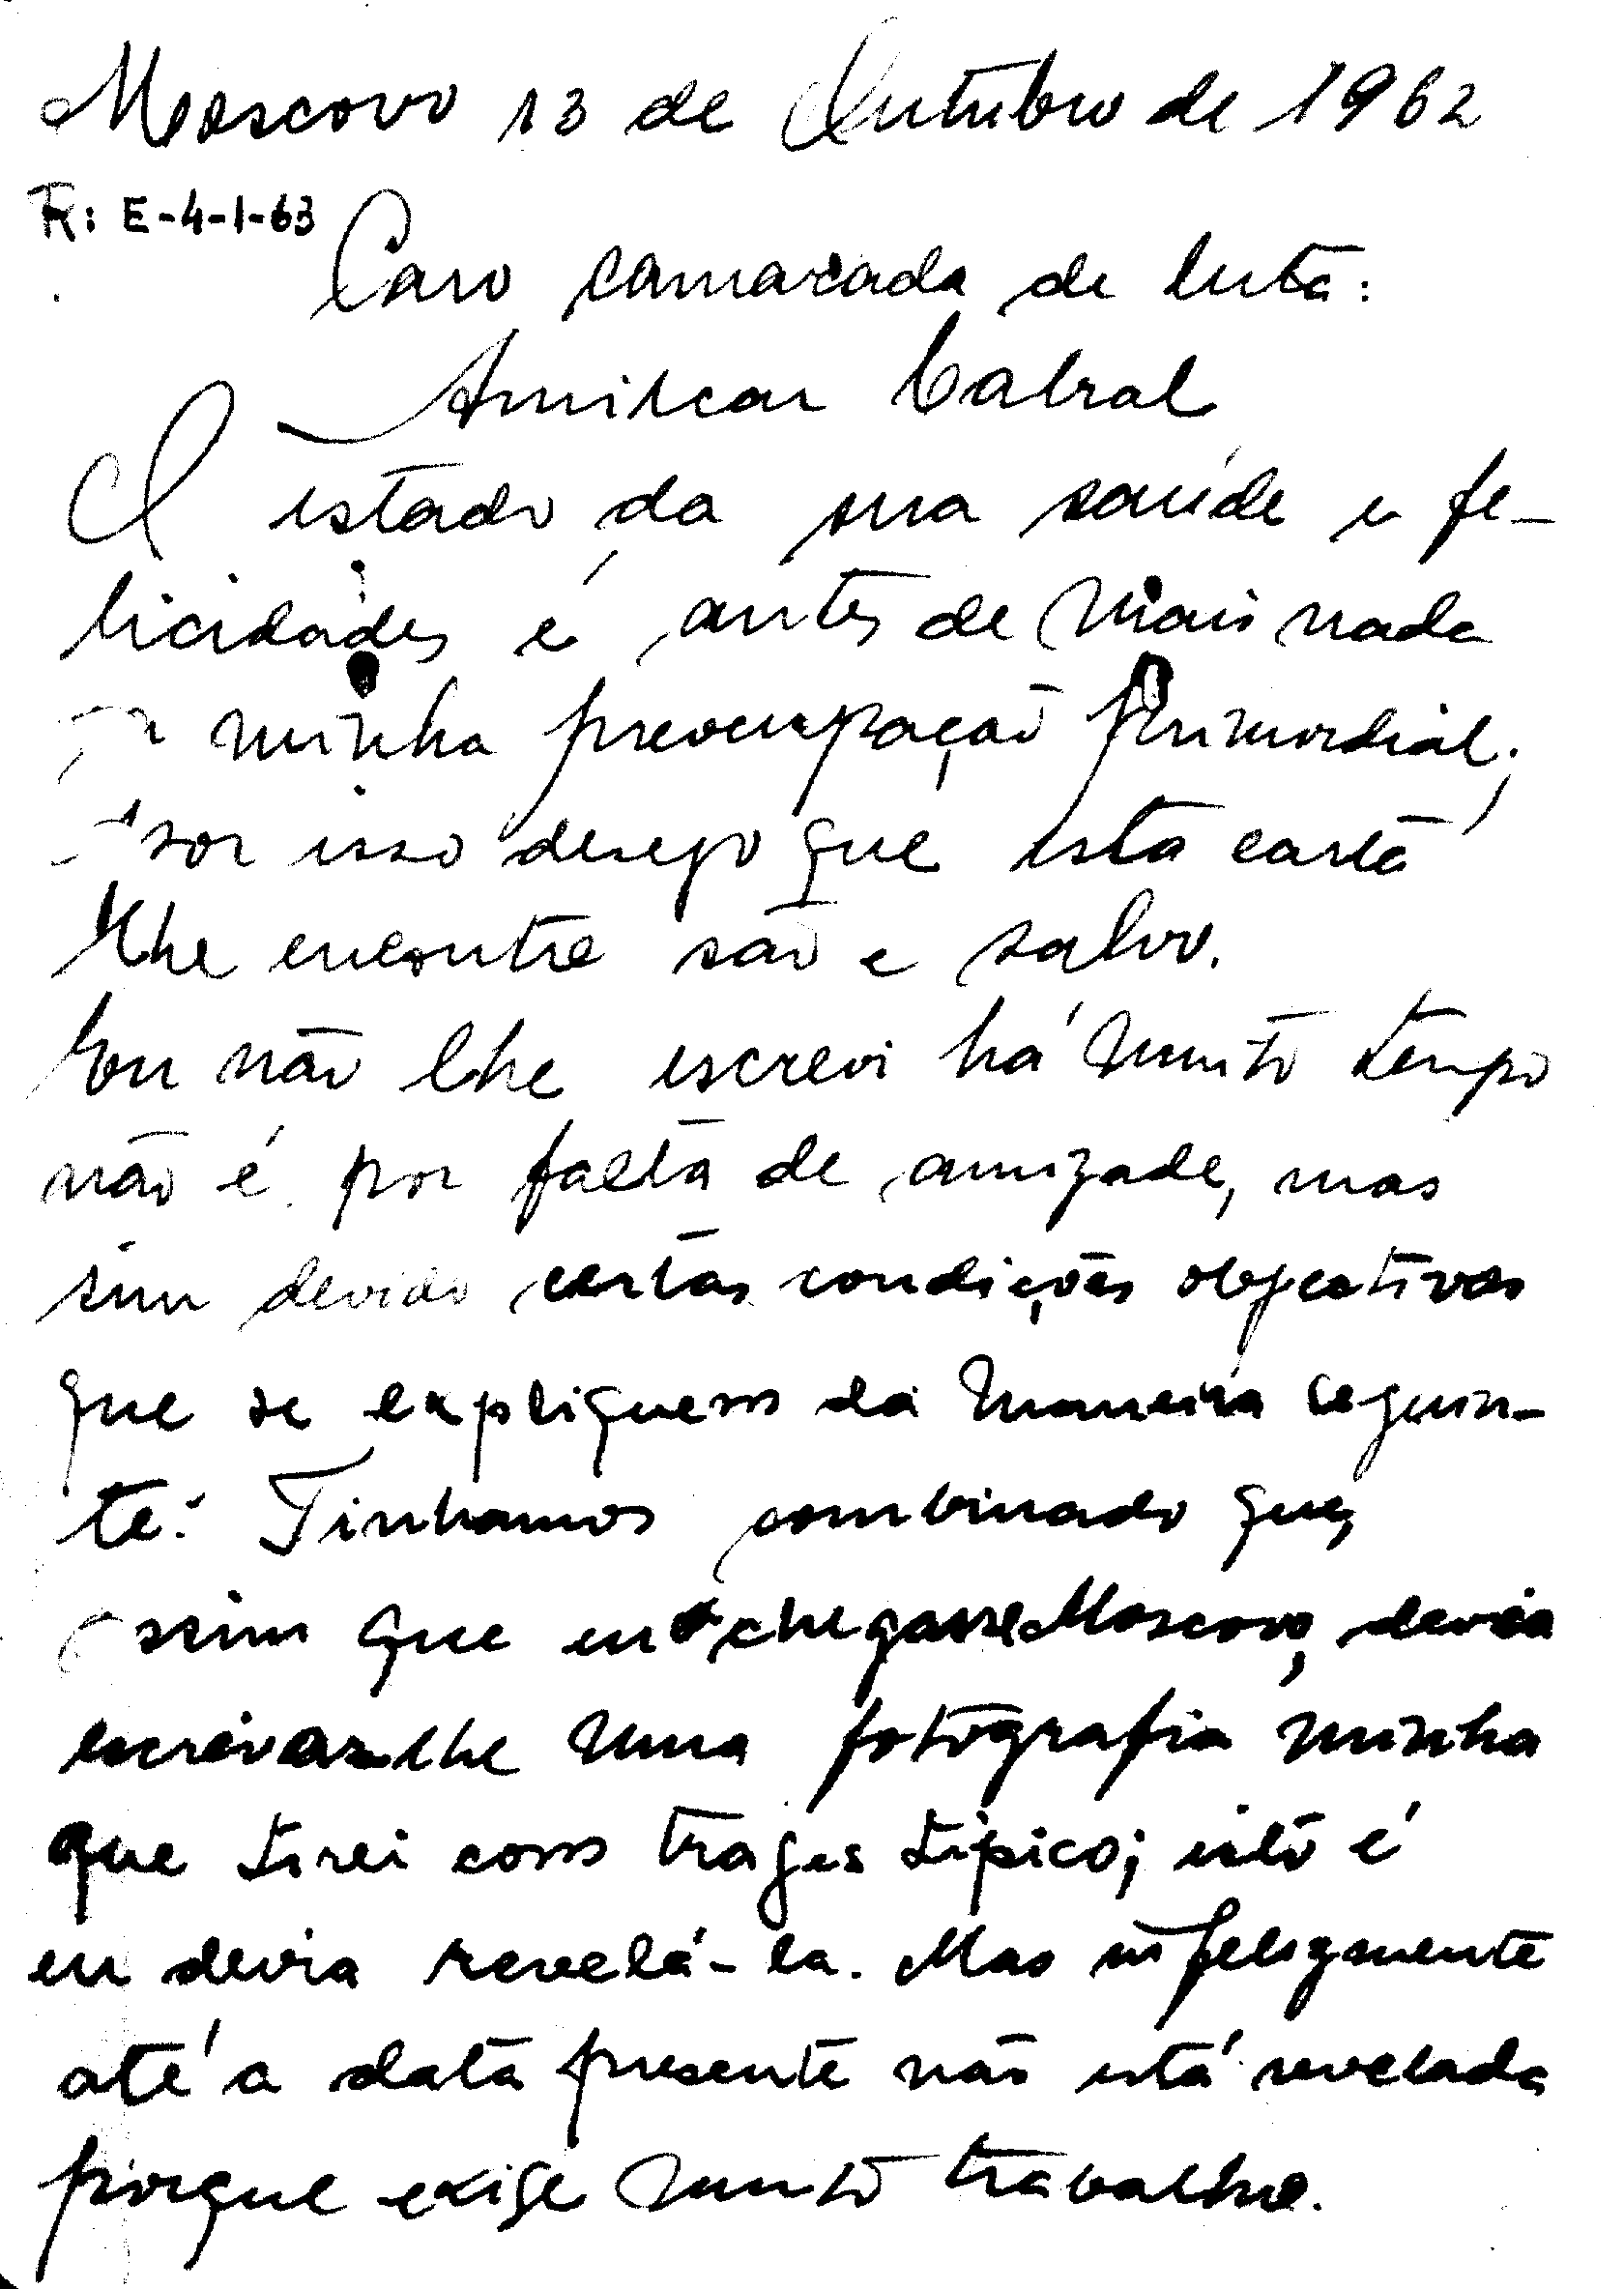 Moscovo 13 de Outubro de 1962
R: E-4-1-63
Caro camarada de luta:
Amilcar Cabral
O estado da sua saúde e fe-
licidades é antes de mais nada
a minha preocupação primordial;
por isso desejo que esta carta
lhe encontre são e salvo.
Eu não lhe escrevi há muito tempo
não é por falta de amizade, mas
sim devido certas condições objectivas
que se expliquem da maneira seguin-
te: Tinhamos combinado que,
assim que eu chegasse Moscovo, devia
enviar-lhe uma fotografia minha
que tirei com trages típico; isto é
eu devia revelá-la. Mas infelizmente
até a data presente não está revelada
porque exige muito trabalho.